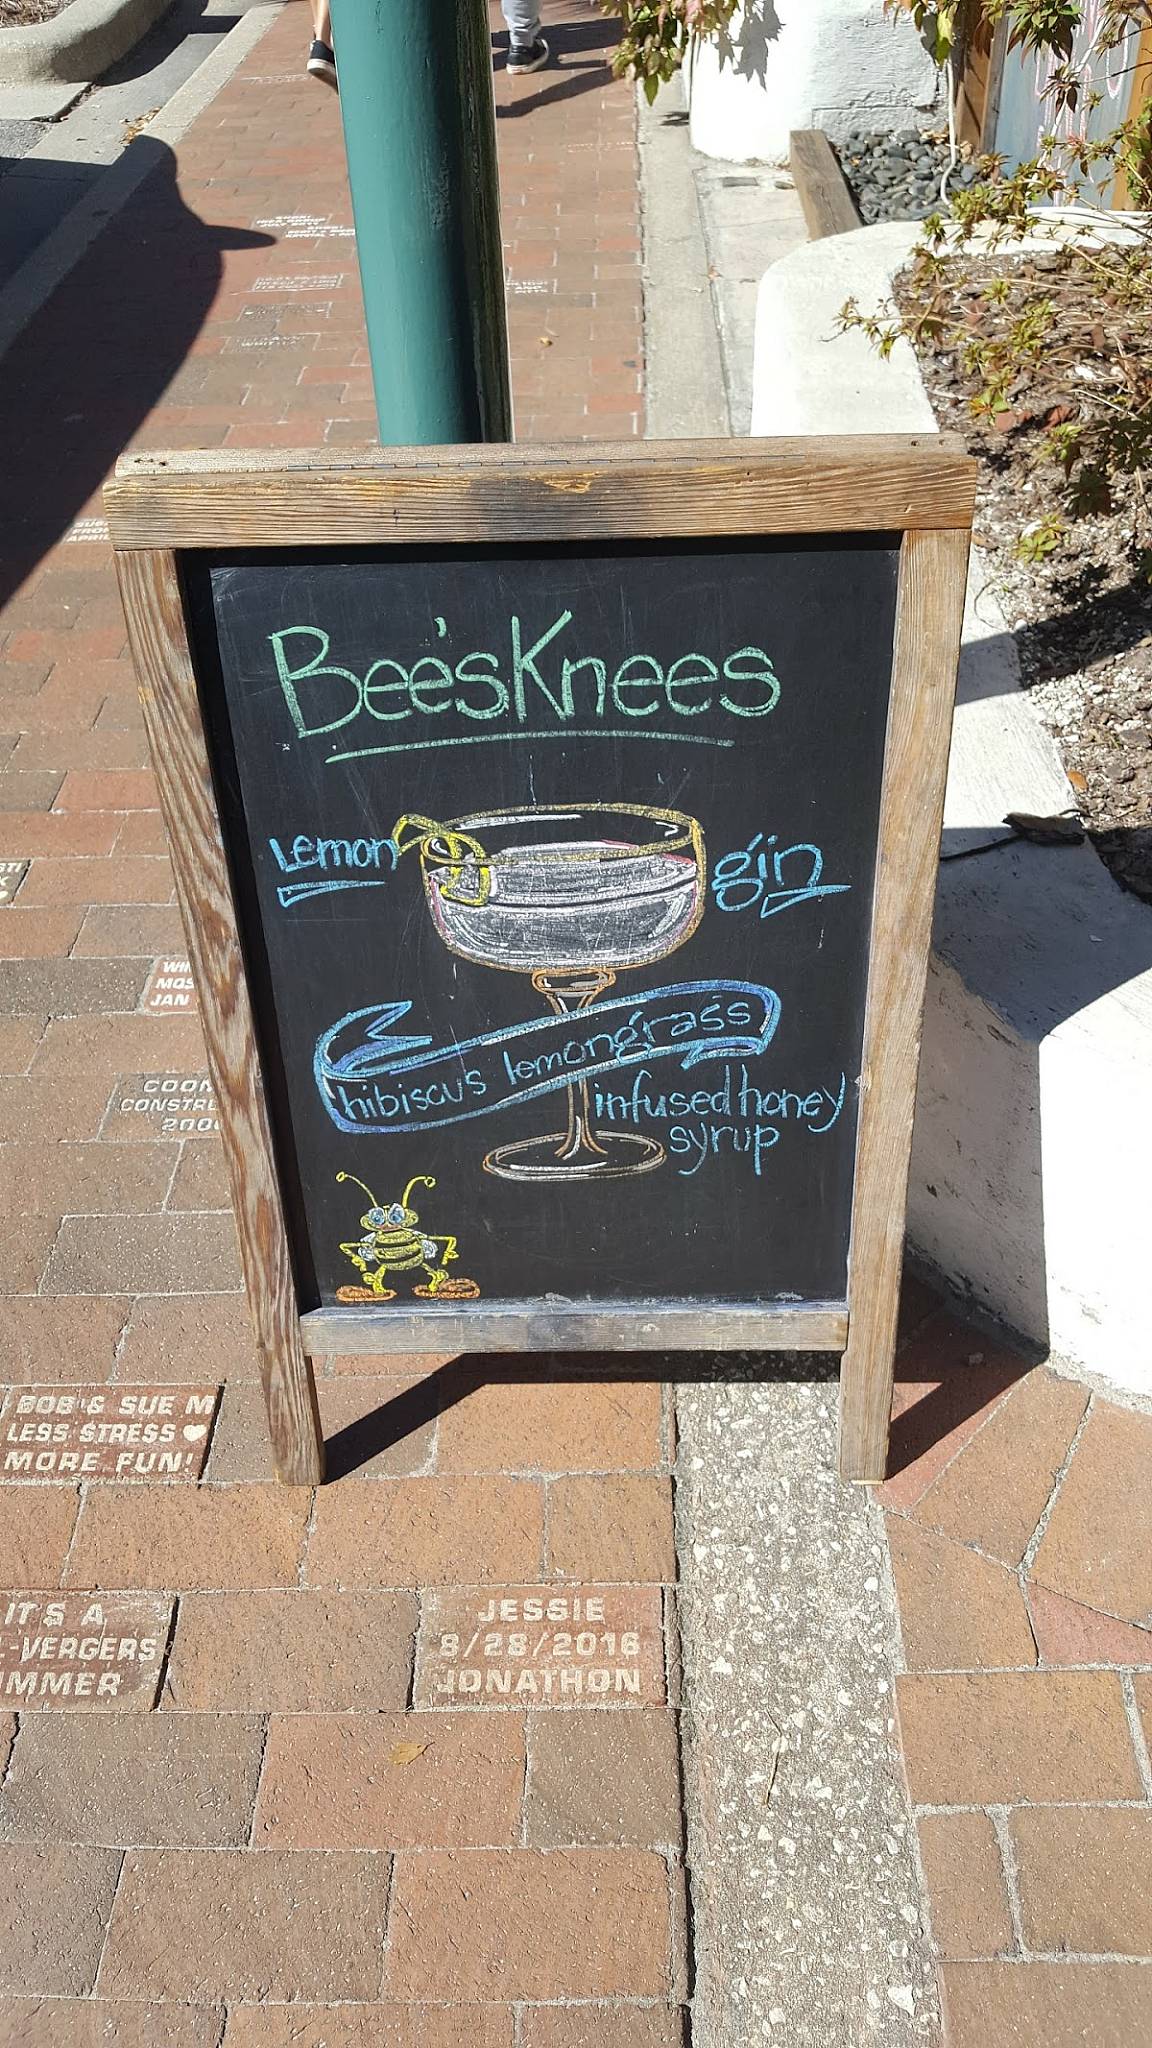 Bee'sKnees
Lemon
gin
hibiscus lemongrass
infused honey
syrup
COON
CONSTRU
2000
BOB & SUE M
LESS STRESS ♥
MORE FUN!
IT'S A
L-VERGERS
MMER
JESSIE
8/28/2016
JONATHON